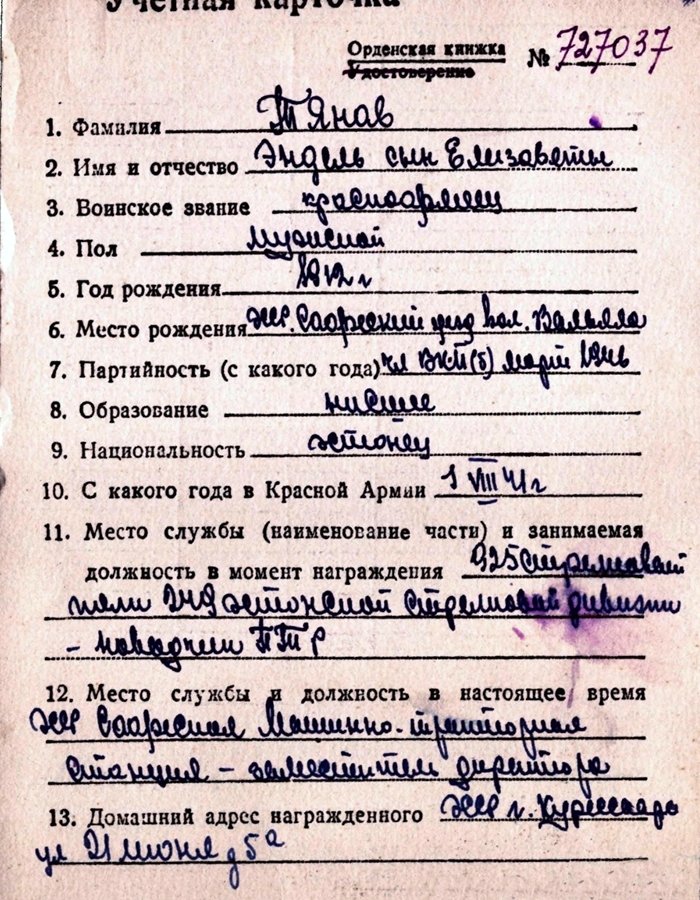 Учетная карточка
Орденская книжка
Удостоверение № 727037
1. Фамилия Тянав
2. Имя и отчество Эндель сын Елизаветы
3. Воинское звание красноармеец
4. Пол мужской
5. Год рождения 1912 г
6. Место рождения Саареский уезд вол. Вальяла
7. Партийность (с какого года) чл ВКП(б) март 1946
8. Образование низшее
9. Национальность эстонец
10. С какого года в Красной Армии 1 VIII 41 г
11. Место службы (наименование части) и занимаемая
должность в момент награждения 925 стрелковый
полк 249 эстонской стрелковой дивизии
- наводчик ПТР
12. Место службы и должность в настоящее время
Саареская Машинно-тракторная
станция - заместитель директора
13. Домашний адрес награжденного г. Курессааре
ул 21 июня д 5а